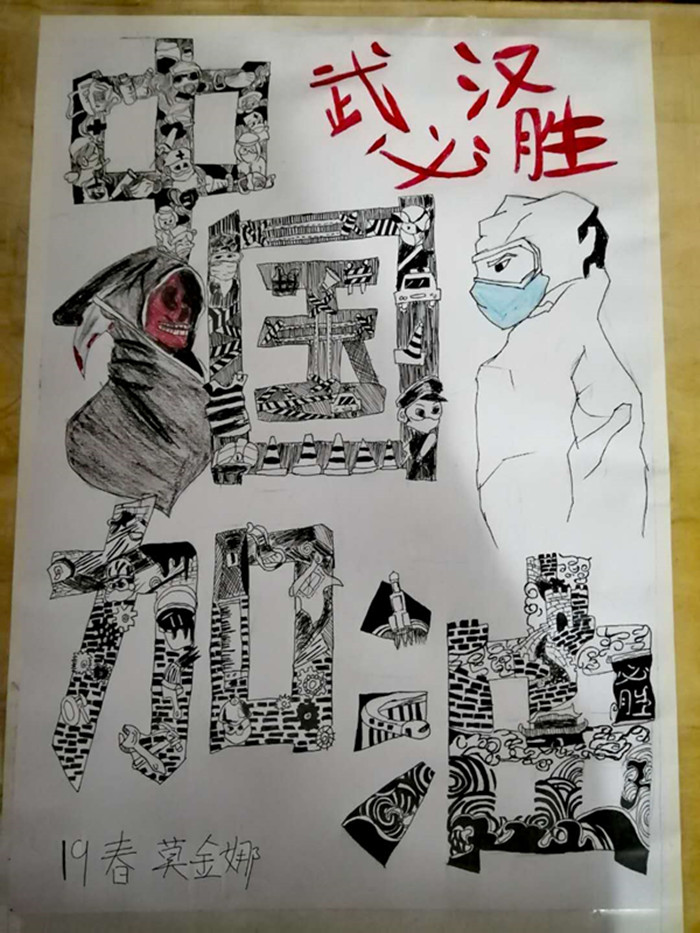 武汉
必胜
中
国
加油
必胜
19春 莫金娜